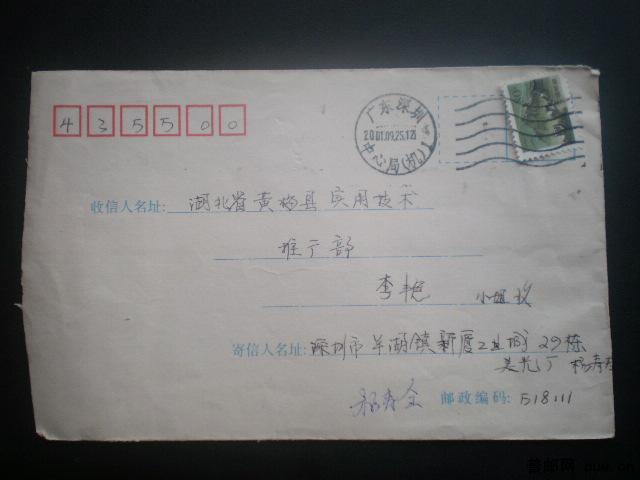 435500
广东深圳
2001.09.25.12
中心局(机)1
收信人名址: 湖北省黄梅县实用技术
推广部
李艳 小姐 收
寄信人名址: 深圳市平湖镇新厦工业城29栋
美光厂 杨寿
杨寿全 邮政编码: 518111